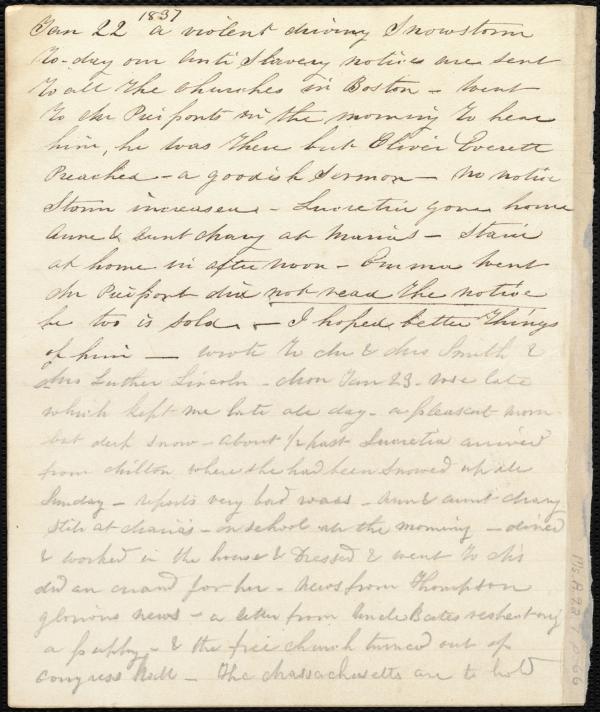 Jan 22 1837 a violent driving Snowstorm
to-day our Anti Slavery notices are sent
to all the churches in Boston - went
to Mr Pierponts in the morning to hear
him, he was there but Oliver Everett
Preached - a goodish Sermon - no notice
Storm increased - Lucretia gone home
Anne & Aunt Mary at Maria's - Staid
at home in afternoon - Emma went
Mr Pierpont did not read the notice
he too is sold - I hoped better things
of him - wrote to Mr & Mrs Smith &
Mrs Luther Lincoln - Mon Jan 23 - rose late
which kept me late all day - a pleasant morn-
but deep snow - about 1/2 past Lucretia arrived
from Milton where she had been snowed up all
Sunday - reports very bad roads - Ann & aunt Mary
still at Maria's - in school in the morning - dined
& worked in the house & Dressed & went to
did an errand for her - News from Thompson
glorious news - a letter from Uncle Bates respecting
a puppy - & the free church turned out of
Congress Hall - The Massachusetts are to hold
Ms. A. 9.2 p. 66